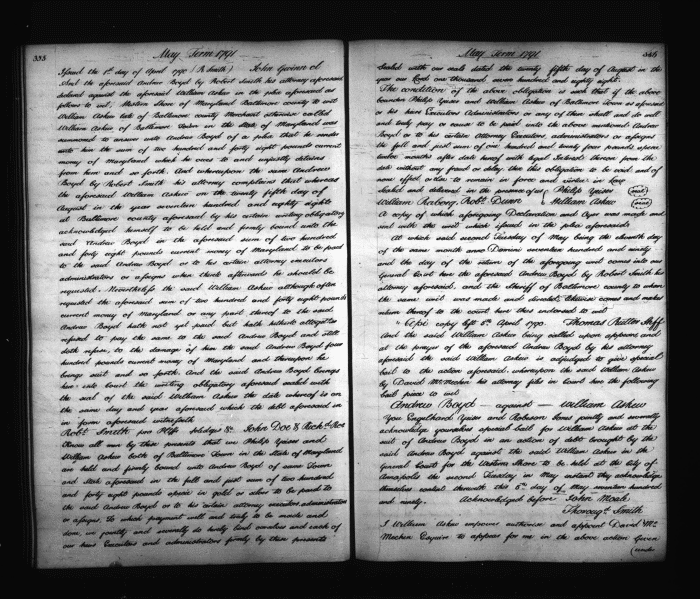 335
May Term 1791
Issued the 1st day of April 1790 (R. Smith) John Gwinn cl
And the aforesaid Andrew Boyd by Robert Smith his attorney aforesaid
declared against the aforesaid William Askew in the plea aforesaid as
follows to wit; Western Shore of Maryland Baltimore County to wit
William Askew late of Baltimore County Merchant otherwise called
William Askew of Baltimore Town and the State of Maryland was
summoned to answer unto Andrew Boyd of a plea that he render
unto him the sum of two hundred and forty eight pounds current
money of Maryland which he owes to and unjustly detains
from him and so forth. And whereupon the same Andrew
Boyd by Robert Smith his attorney complains that whereas
the aforesaid William Askew on the twenty fifth day of
August in the year seventeen hundred and eighty eight
at Baltimore County aforesaid by his certain writing obligatory
acknowledged himself to be held and firmly bound unto the
said Andrew Boyd in the aforesaid sum of two hundred
and forty eight pounds current money of Maryland to be paid
to the said Andrew Boyd or to his certain attorney executors
administrators or assigns when thereto afterwards he should be
requested. Nevertheless the said William Askew although often
requested the aforesaid sum of two hundred and forty eight pounds
current money of Maryland or any part thereof to the said
Andrew Boyd hath not yet paid but hath hitherto altogether
refused to pay the same to the said Andrew Boyd and still
doth refuse, to the damage of him the said Andrew Boyd four
hundred pounds current money of Maryland and thereupon he
brings suit and so forth. And the said Andrew Boyd brings
here into Court the writing obligatory aforesaid sealed with
the seal of the said William Askew the date whereof is on
the same day and year aforesaid which the debt aforesaid in
in form aforesaid witnesseth
Robt. Smith pro Plff pledges &c John Doe & Richd. Roe
Know all men by these presents that we Philip Yeiser and
William Askew both of Baltimore Town in the State of Maryland
are held and firmly bound unto Andrew Boyd of same Town
and State aforesaid in the full and just sum of two hundred
and forty eight pounds specie in gold or silver to be paid to
the said Andrew Boyd or to his certain attorney executors administrators
or assigns. To which payment well and truly to be made and
done, we jointly and severally do hereby bind ourselves and each of
our heirs Executors and administrators firmly by these presents
336
May Term 1791
Sealed with our seals dated the twenty fifth day of August in the
year our Lord one thousand seven hundred and eighty eight.
The condition of the above obligation is such that if the above
bounden Philip Yeiser and William Askew of Baltimore Town as aforesaid
or his heirs Executors Administrators or any of them shall and do well
and truly pay or cause to be paid unto the above mentioned Andrew
Boyd or to his certain Attorney Executors administrators or assigns
the full and just sum of one hundred and twenty four pounds specie
twelve months after date hereof with legal Interest thereon from the
date without any fraud or delay, then this obligation to be void and of
none effect or else to remain in force and virtue in Law
Sealed and delivered in the presence of us Philip Yeiser (seal)
William Raborg, Robt. Dunn William Askew (seal)
A copy of which aforegoing Declaration and Oyer was made and
sent with the writ which issued in the plea aforesaid
At which said second Tuesday of May being the eleventh day
of the same month anno Domini seventeen hundred and ninety
and the day of the return of the aforegoing writ comes into our
General Court here the aforesaid Andrew Boyd by Robert Smith his
attorney aforesaid, and the Sheriff of Baltimore County to whom
the same writ was made and directed likewise comes and makes
return thereof to the Court here thus endorsed to wit
"Cepi copy left 5th April 1790. Thomas Rutter Shff
And the said William Askew being called upon appears and
at the prayer of the aforesaid Andrew Boyd by his attorney
aforesaid the said William Askew is adjudged to give special
bail to the action aforesaid, whereupon the said William Askew
by David McMechen his attorney files in Court here the following
bail piece to wit
Andrew Boyd against William Askew
You Englehard Yeiser and Robinson Jones jointly and severally
acknowledge yourselves special bail for William Askew at the
suit of Andrew Boyd in an action of debt brought by the
said Andrew Boyd against the said William Askew in the
General Court for the Western Shore to be held at the City of
Annapolis the second Tuesday in May instant they acknowledge
themselves content therewith this 5th day of May seventeen hundred
and ninety. Acknowledged before John Moale
Thorougd. Smith
I William Askew empower authorise and appoint David Mc
Mechen Esquire to appear for me in the above action Given
(under